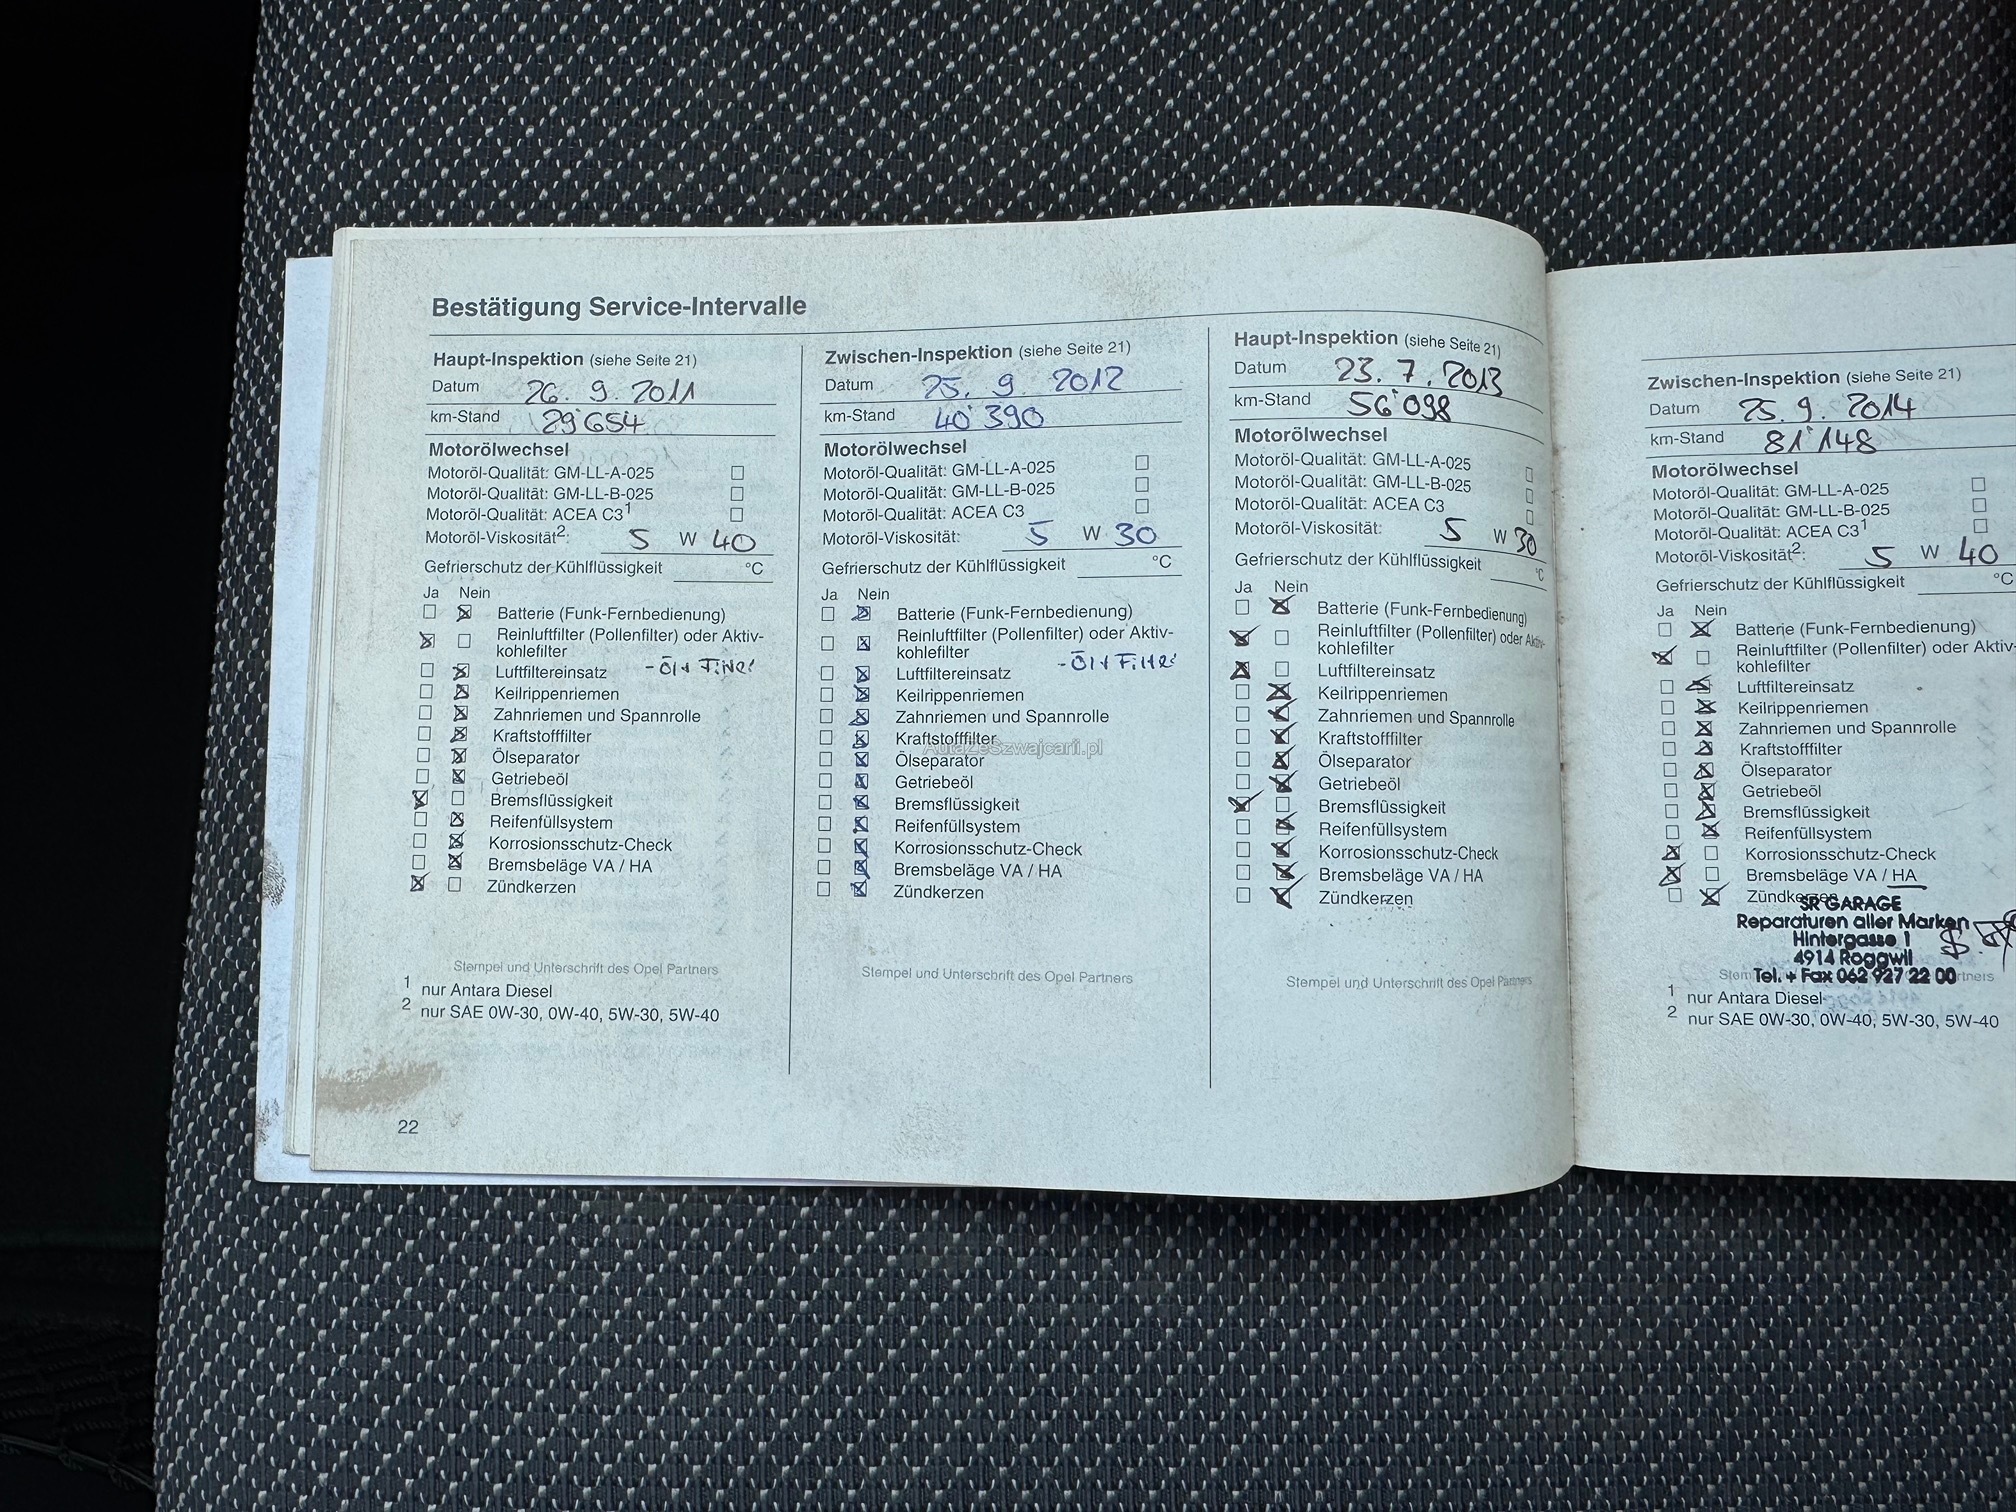 Bestätigung Service-Intervalle
Haupt-Inspektion (siehe Seite 21)
Datum 26. 9. 2011
km-Stand 29'654
Motorölwechsel
Motoröl-Qualität: GM-LL-A-025
Motoröl-Qualität: GM-LL-B-025
Motoröl-Qualität: ACEA C3¹
Motoröl-Viskosität²: 5 W 40
Gefrierschutz der Kühlflüssigkeit °C
Ja Nein
Batterie (Funk-Fernbedienung)
Reinluftfilter (Pollenfilter) oder Aktiv-
kohlefilter
Luftfiltereinsatz - Öl +
Keilrippenriemen
Zahnriemen und Spannrolle
Kraftstofffilter
Ölseparator
Getriebeöl
Bremsflüssigkeit
Reifenfüllsystem
Korrosionsschutz-Check
Bremsbeläge VA / HA
Zündkerzen
Stempel und Unterschrift des Opel Partners
1 nur Antara Diesel
2 nur SAE 0W-30, 0W-40, 5W-30, 5W-40
22
Zwischen-Inspektion (siehe Seite 21)
Datum 25. 9. 2012
km-Stand 40'390
Motorölwechsel
Motoröl-Qualität: GM-LL-A-025
Motoröl-Qualität: GM-LL-B-025
Motoröl-Qualität: ACEA C3
Motoröl-Viskosität: 5 W 30
Gefrierschutz der Kühlflüssigkeit °C
Ja Nein
Batterie (Funk-Fernbedienung)
Reinluftfilter (Pollenfilter) oder Aktiv-
kohlefilter
Luftfiltereinsatz - Öl + Filter
Keilrippenriemen
Zahnriemen und Spannrolle
Kraftstofffilter
AutaZeSzwajcarii.pl
Ölseparator
Getriebeöl
Bremsflüssigkeit
Reifenfüllsystem
Korrosionsschutz-Check
Bremsbeläge VA / HA
Zündkerzen
Stempel und Unterschrift des Opel Partners
Haupt-Inspektion (siehe Seite 21)
Datum 23. 7. 2013
km-Stand 56'098
Motorölwechsel
Motoröl-Qualität: GM-LL-A-025
Motoröl-Qualität: GM-LL-B-025
Motoröl-Qualität: ACEA C3
Motoröl-Viskosität: 5 W 30
Gefrierschutz der Kühlflüssigkeit °C
Ja Nein
Batterie (Funk-Fernbedienung)
Reinluftfilter (Pollenfilter) oder Aktiv-
kohlefilter
Luftfiltereinsatz
Keilrippenriemen
Zahnriemen und Spannrolle
Kraftstofffilter
Ölseparator
Getriebeöl
Bremsflüssigkeit
Reifenfüllsystem
Korrosionsschutz-Check
Bremsbeläge VA / HA
Zündkerzen
Stempel und Unterschrift des Opel Partners
Zwischen-Inspektion (siehe Seite 21)
Datum 25. 9. 2014
km-Stand 81'148
Motorölwechsel
Motoröl-Qualität: GM-LL-A-025
Motoröl-Qualität: GM-LL-B-025
Motoröl-Qualität: ACEA C3¹
Motoröl-Viskosität²: 5 W 40
Gefrierschutz der Kühlflüssigkeit °C
Ja Nein
Batterie (Funk-Fernbedienung)
Reinluftfilter (Pollenfilter) oder Aktiv-
kohlefilter
Luftfiltereinsatz
Keilrippenriemen
Zahnriemen und Spannrolle
Kraftstofffilter
Ölseparator
Getriebeöl
Bremsflüssigkeit
Reifenfüllsystem
Korrosionsschutz-Check
Bremsbeläge VA / HA
Zündkerzen
SR GARAGE
Reparaturen aller Marken
Hintergasse 1
4914 Roggwil
Tel. + Fax 062 927 22 00
1 nur Antara Diesel
2 nur SAE 0W-30, 0W-40, 5W-30, 5W-40